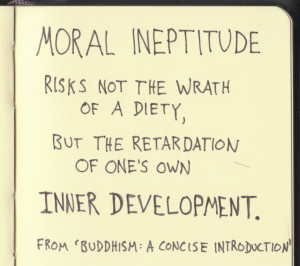 MORAL INEPTITUDE
RISKS NOT THE WRATH
OF A DIETY,
BUT THE RETARDATION
OF ONE'S OWN
INNER DEVELOPMENT.
FROM 'BUDDHISM: A CONCISE INTRODUCTION'